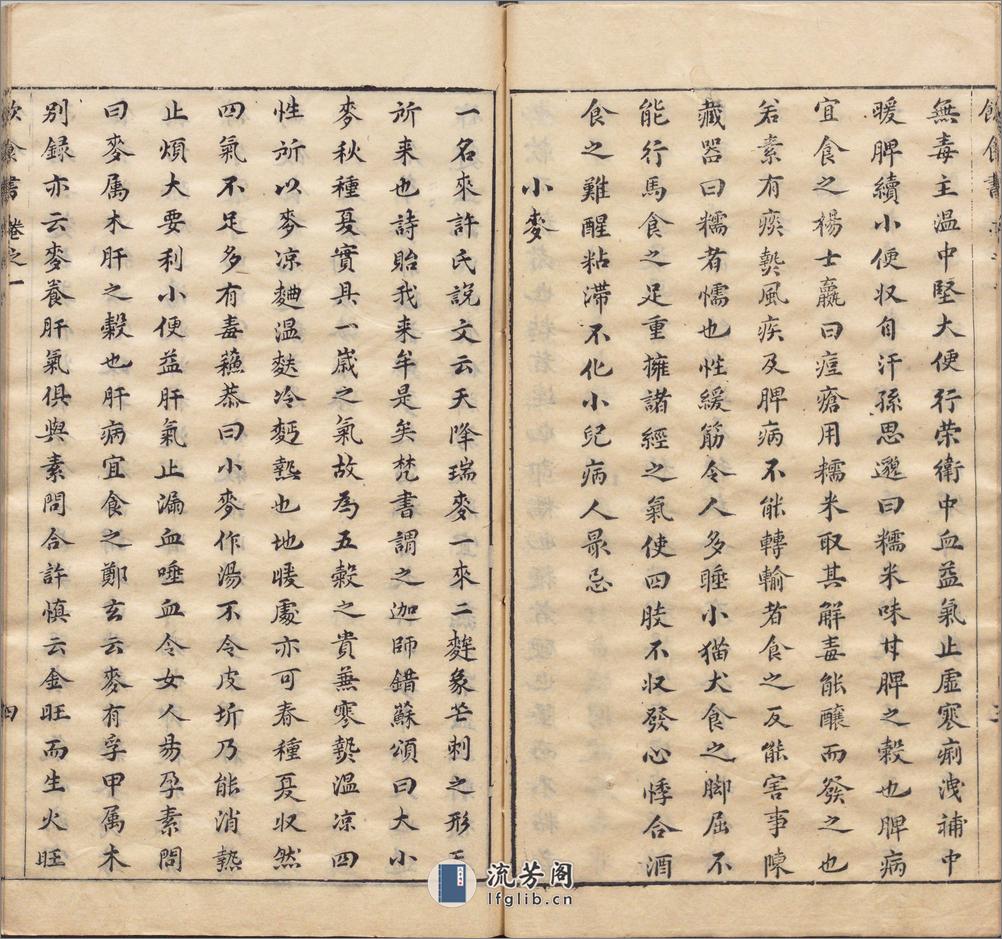 無毒主温中堅大便行荣衛中血益氣止虚寒痢洩補中
暖脾續小便収自汗孫思邈曰糯米味甘脾之穀也脾病
宜食之楊士瀛曰痘瘡用糯米取其解毒能釀而發之也
若素有痰熱風疾及脾病不能轉輸者食之反能害事陳
藏器曰糯者懦也性緩筋令人多睡小猫犬食之脚屈不
能行馬食之足重擁諸經之氣使四肢不収發心悸合酒
食之難醒粘滞不化小兒病人最忌
小麥
一名來許氏説文云天降瑞麥一來二麰象芒刺之形天
所来也詩貽我来牟是矣梵書謂之迦師錯蘇頌曰大小
麥秋種夏實具一歲之氣故為五穀之貴兼寒熱温凉四
性所以麥凉麯温麩冷麪熱也地暖處亦可春種夏収然
四氣不足多有毒蘓恭曰小麥作湯不令皮坼乃能消熱
止煩大要利小便益肝氣止漏血唾血令女人易孕素問
曰麥属木肝之穀也肝病宜食之鄭玄云麥有孚甲属木
别録亦云麥養肝氣俱與素問合許慎云金旺而生火旺
飲食書卷之一
四
流芳阁
lfglib.cn